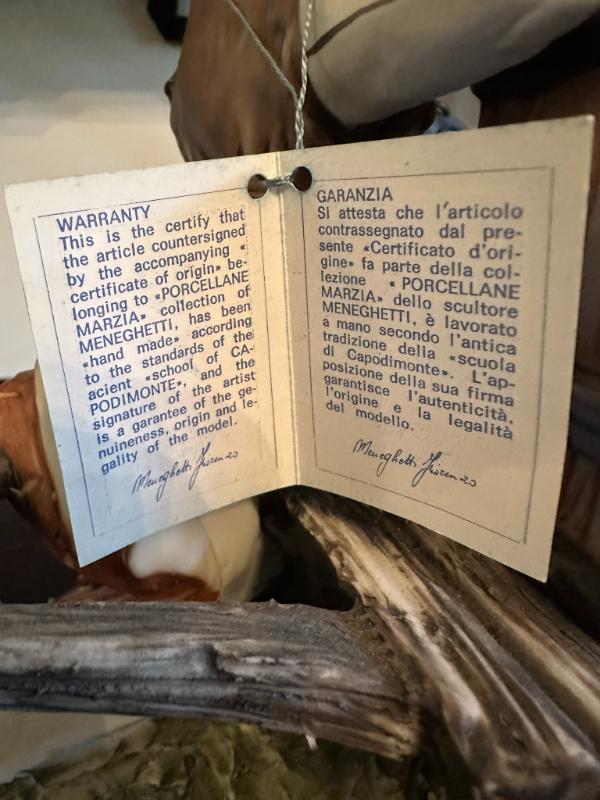 WARRANTY
This is the certify that
the article countersigned
by the accompanying «
certificate of origin» be-
longing to «PORCELLANE
MARZIA» collection of
MENEGHETTI, has been
«hand made» according
to the standards of the
acient «school of CA-
PODIMONTE», and the
signature of the artist
is a garantee of the ge-
nuineness, origin and le-
gality of the model.
Meneghetti Fiorenzo
GARANZIA
Si attesta che l'articolo
contrassegnato dal pre-
sente «Certificato d'ori-
gine» fa parte della col-
lezione « PORCELLANE
MARZIA» dello scultore
MENEGHETTI, è lavorato
a mano secondo l'antica
tradizione della «scuola
di Capodimonte». L'ap-
posizione della sua firma
garantisce l'autenticità,
l'origine e la legalità
del modello.
Meneghetti Fiorenzo